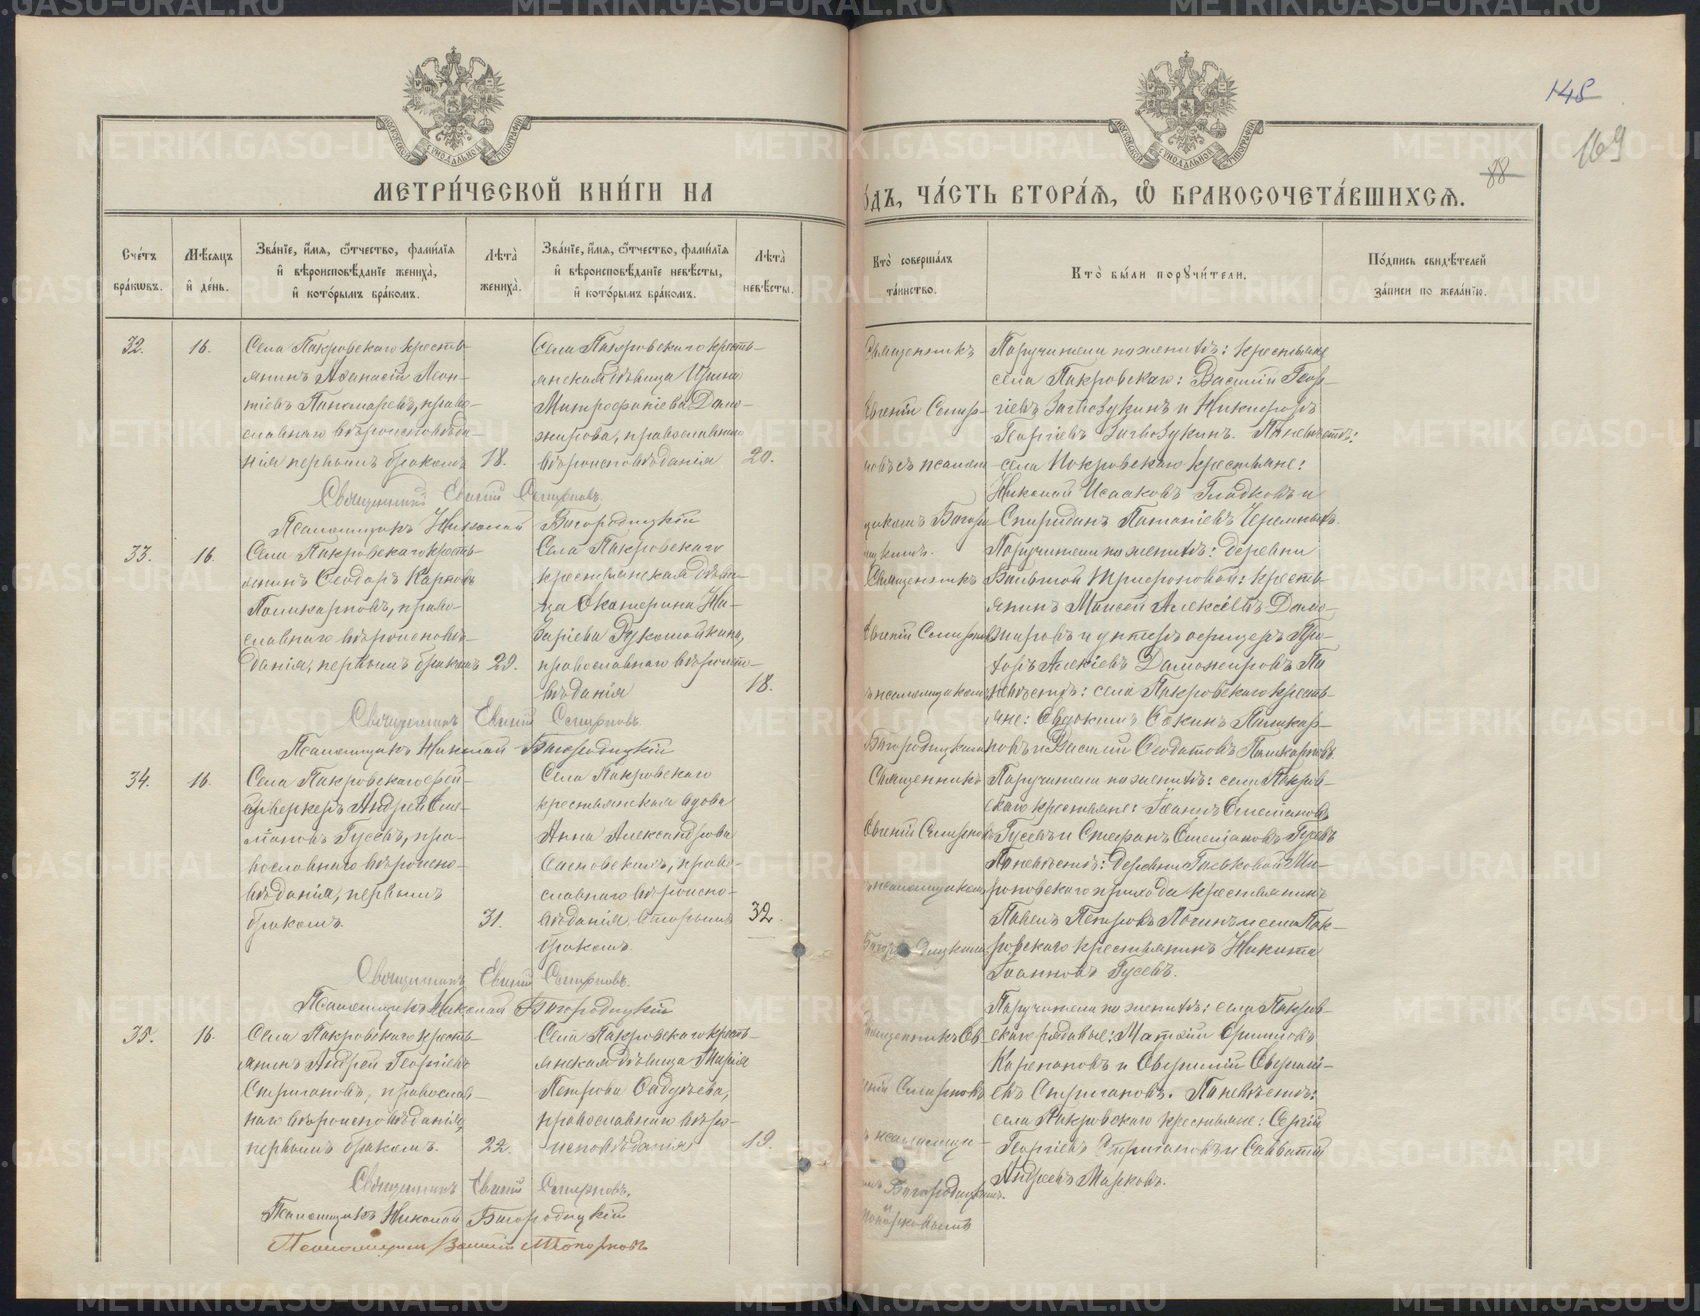 МЕТРИ́ЧЕСКОЙ КНИ́ГИ НА
О́ДЪ, ЧА́СТЬ ВТОРА́Я, Ѡ БРАКОСОЧЕТА́ВШИХСЯ.
148
169
88
Сче́тъ бра́кѡвъ.
Мѣ́сяцъ и҆ де́нь.
Зва́нїе, и҆́мя, ѻ҆́тчество, фами́лїя и҆ вѣроисповѣ́данїе жениха̀, и҆ кото́рымъ бра́комъ.
Лѣ́та жениха̀.
Зва́нїе, и҆́мя, ѻ҆́тчество, фами́лїя и҆ вѣроисповѣ́данїе невѣ́сты, и҆ кото́рымъ бра́комъ.
Лѣ́та невѣ́сты.
Кто̀ соверша́лъ та́инство.
Кто̀ бы́ли поручи́тели.
По́дпись свидѣ́телей за́писи по жела́нїю.
32.
16.
Села Покровскаго кресть-
янинъ Аѳанасій Леон-
тіевъ Пономаревъ, право-
славнаго вѣроисповѣда-
нія первымъ бракомъ
18.
Села Покровскаго кресть-
янская дѣвица Ирина
Митрофаніева Домо-
жирова, православнаго
вѣроисповѣданія
20.
Священникъ
Евгеній Смир-
новъ съ псалом-
щикомъ Богоро-
Поручители по женихѣ: крестьяне
села Покровскаго: Василій Геор-
гіевъ Загвозкинъ и Никифоръ
Георгіевъ Загвозкинъ. По невѣстѣ:
села Покровскаго крестьяне:
Николай Исааковъ Гладковъ и
Спиридонъ Потапіевъ Черемныхъ.
Священникъ Евгеній Смирновъ.
Псаломщикъ Николай Богородицкій
33.
16.
Села Покровскаго кресть-
янинъ Ѳеодоръ Карповъ
Поликарповъ, право-
славнаго вѣроисповѣ-
данія, первымъ бракомъ
20.
Села Покровскаго
крестьянская дѣви-
ца Екатерина На-
заріева Рукомойкина,
православнаго вѣроиспо-
вѣданія
18.
Священникъ
Евгеній Смирновъ
псаломщикомъ
Богородицкимъ
Поручители по женихѣ: деревни
Большой Трифоновой: кресть-
янинъ Моисей Алексѣевъ Домо-
жировъ и унтеръ офицеръ Про-
хоръ Алексіевъ Доможировъ По
невѣстѣ: села Покровскаго кресть-
яне: Евдокимъ Ѳокинъ Поликар-
повъ и Василій Ѳеодотовъ Поликарповъ.
Священникъ Евгеній Смирновъ.
Псаломщикъ Николай Богородицкій
34.
16.
Села Покровскаго фей-
ерверкеръ Андрей Сте-
пановъ Гусевъ, пра-
вославнаго вѣроиспо-
вѣданія, первымъ
бракомъ.
31.
Села Покровскаго
крестьянская вдова
Анна Александрова
православнаго вѣроиспо-
вѣданія, вторымъ
бракомъ.
32.
Священникъ
Евгеній Смирновъ
псаломщикомъ
Богородицкимъ
Поручители по женихѣ: села Покров-
скаго крестьяне: Іоаннъ Стефановъ
Гусевъ и Стефанъ Стефановъ Гусевъ
По невѣстѣ: деревни Гостьковой Ми-
роновскаго прихода крестьянинъ
Павелъ Петровъ Логинъ и села Пок-
ровскаго крестьянинъ Никита
Іоанновъ Гусевъ.
Священникъ Евгеній Смирновъ.
Псаломщикъ Николай Богородицкій
35.
16.
Села Покровскаго кресть-
янинъ Андрей Георгіевъ
Стригановъ, православ-
наго вѣроисповѣданія,
первымъ бракомъ.
22.
Села Покровскаго кресть-
янская дѣвица Марія
Петрова Ѳадѣева,
православнаго вѣро-
исповѣданія
19.
Священникъ Ев-
геній Смирновъ
псаломщи-
Богородицкимъ.
Топорковымъ
Поручители по женихѣ: села Покров-
скаго рядовые: Матѳій Ефимовъ
Карепановъ и Евфимій Евфимі-
евъ Стригановъ. По невѣстѣ:
села Покровскаго крестьяне: Сергій
Георгіевъ Стригановъ и Савватій
Андреевъ Марковъ.
Священникъ Евгеній Смирновъ.
Псаломщикъ Николай Богородицкій
Псаломщикъ Василій Топорковъ
METRIKI.GASO-URAL.RU